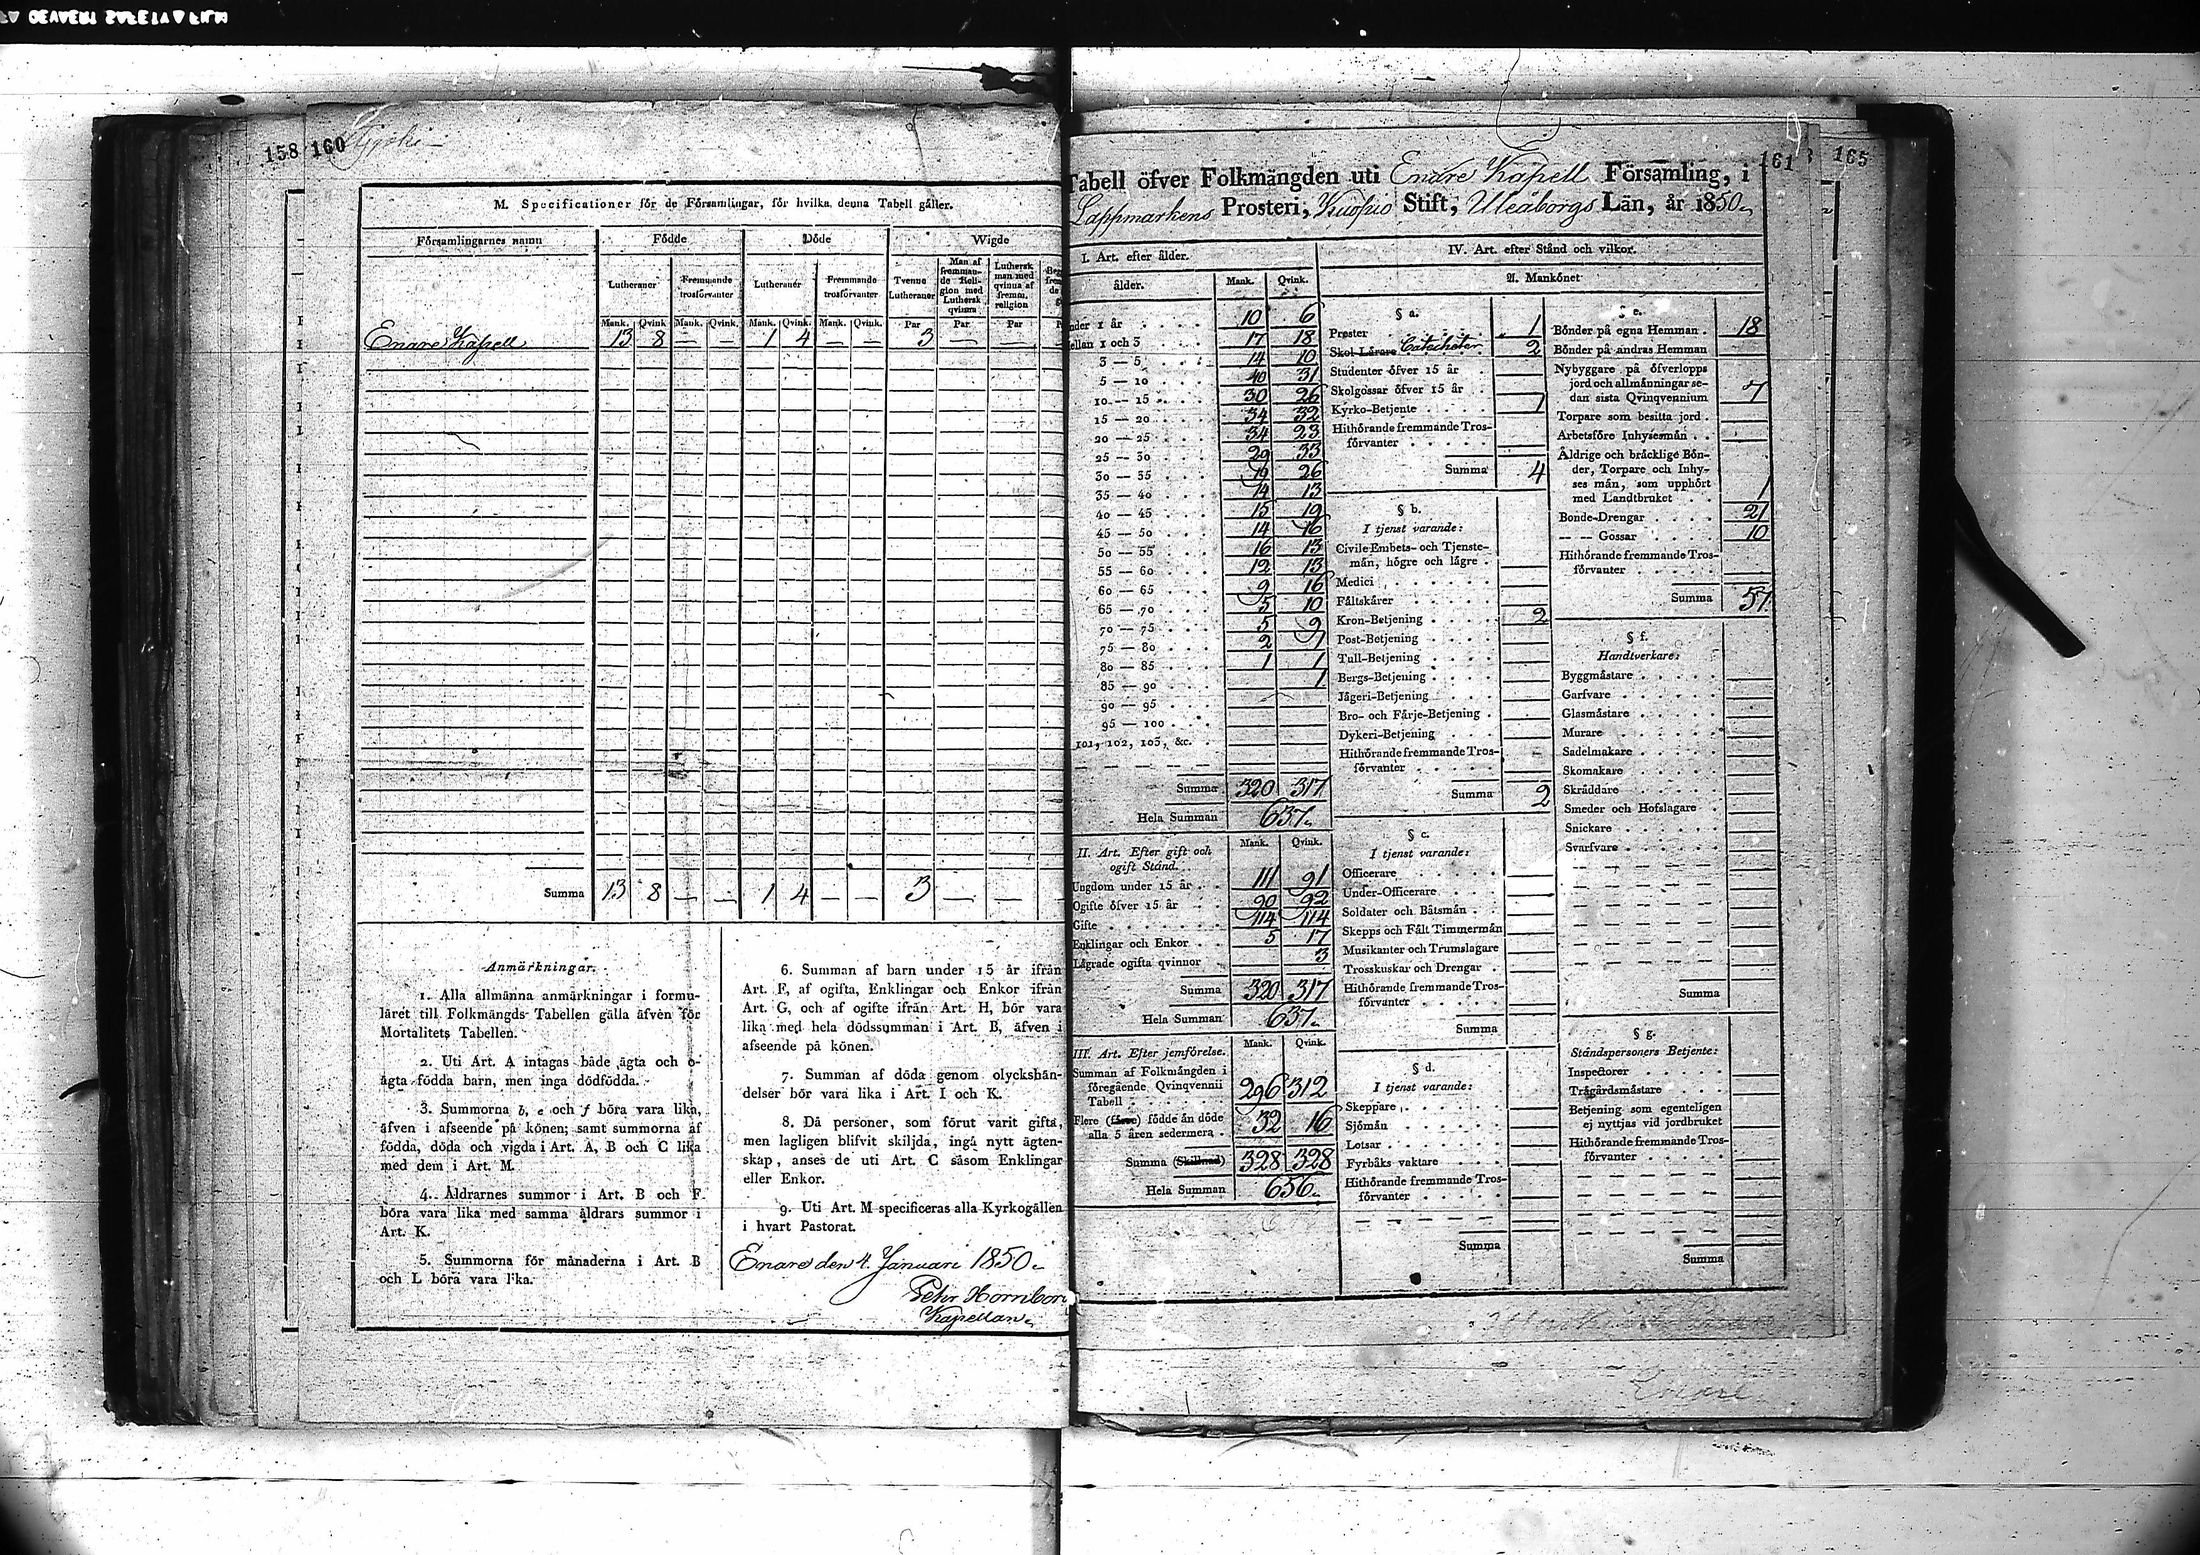 158
160
M. Specificationer för de Församlingar, för hvilka denna Tabell gäller.
Församlingarnes namn Födde Döde Wigde
Lutheraner Fremmande trosförvanter Lutheraner Fremmande trosförvanter Tvenne Lutheraner Man af fremman- de Reli- gion med Luthersk qvinna Luthersk man med qvinna af fremm. religion
Mank. Qvink Mank. Qvink. Mank. Qvink. Mank. Qvink. Par Par Par
Enare Kapell 13 8 — — 1 4 — — 3 — —
Summa 13 8 — — 1 4 — — 3 — —
Anmärkningar.
1. Alla allmänna anmärkningar i formu-
läret till Folkmängds-Tabellen gälla äfven för
Mortalitets Tabellen.
2. Uti Art. A intagas både ägta och o-
ägta födda barn, men inga dödfödda.
3. Summorna b, e och f böra vara lika,
äfven i afseende på könen; samt summorna af
födda, döda och vigda i Art. A, B och C lika
med dem i Art. M.
4. Åldrarnes summor i Art. B och F
böra vara lika med samma åldrars summor i
Art. K.
5. Summorna för månaderna i Art. B
och L böra vara lika.
6. Summan af barn under 15 år ifrån
Art. F, af ogifta, Enklingar och Enkor ifrån
Art. G, och af ogifte ifrån Art. H, bör vara
lika med hela dödssumman i Art. B, äfven i
afseende på könen.
7. Summan af döda genom olyckshän-
delser bör vara lika i Art. I och K.
8. Då personer, som förut varit gifta,
men lagligen blifvit skiljda, ingå nytt ägten-
skap, anses de uti Art. C såsom Enklingar
eller Enkor.
9. Uti Art. M specificeras alla Kyrkogällen
i hvart Pastorat.
Enare den 4. Januari 1850.
Pehr Hornbor
Kapellan.
161
165
Tabell öfver Folkmängden uti Enare Kapell Församling, i
Lappmarkens Prosteri, Kuopio Stift, Uleåborgs Län, år 1850.
I. Art. efter ålder.
ålder. Mank. Qvink.
nder 1 år 10 6
ellan 1 och 3 17 18
3 — 5 14 10
5 — 10 40 31
10 — 15 30 26
15 — 20 34 32
20 — 25 34 23
25 — 30 29 33
30 — 35 19 26
35 — 40 14 13
40 — 45 15 19
45 — 50 14 16
50 — 55 16 13
55 — 60 12 13
60 — 65 9 16
65 — 70 5 10
70 — 75 5 9
75 — 80 2 1
80 — 85 1 1
85 — 90 1
90 — 95
95 — 100
101, 102, 103, &c.
Summa 320 317
Hela Summan 637.
II. Art. Efter gift och ogift Stånd. Mank. Qvink.
Ungdom under 15 år 111 91
Ogifte öfver 15 år 90 92
Gifte 114 114
Enklingar och Enkor 5 17
Lägrade ogifta qvinnor 3
Summa 320 317
Hela Summan 637.
III. Art. Efter jemförelse. Mank. Qvink.
Summan af Folkmängden i
föregående Qvinqvennii
Tabell 296 312
Flere (färre) födde än döde
alla 5 åren sedermera 32 16
Summa (Skillnad) 328 328
Hela Summan 656.
IV. Art. efter Stånd och vilkor.
A. Mankönet
§ a.
Prester 1
Skol-Lärare Catecheter 2
Studenter öfver 15 år
Skolgossar öfver 15 år
Kyrko-Betjente 1
Hithörande fremmande Tros-
förvanter
Summa 4
§ b.
I tjenst varande:
Civile Embets- och Tjenste-
män, högre och lägre
Medici
Fältskärer
Kron-Betjening 2
Post-Betjening
Tull-Betjening
Bergs-Betjening
Jägeri-Betjening
Bro- och Färje-Betjening
Dykeri-Betjening
Hithörande fremmande Tros-
förvanter
Summa 2
§ c.
I tjenst varande:
Officerare
Under-Officerare
Soldater och Båtsmän
Skepps och Fält Timmermän
Musikanter och Trumslagare
Trosskuskar och Drengar
Hithörande fremmande Tros-
förvanter
Summa
§ d.
I tjenst varande:
Skeppare
Sjömän
Lotsar
Fyrbåks vaktare
Hithörande fremmande Tros-
förvanter
Summa
§ e.
Bönder på egna Hemman 18
Bönder på andras Hemman
Nybyggare på öfverlopps
jord och allmänningar se-
dan sista Qvinqvennium 7
Torpare som besitta jord
Arbetsföre Inhysesmän
Äldrige och bräcklige Bön-
der, Torpare och Inhy-
ses män, som upphört
med Landtbruket 1
Bonde-Drengar 21
— — Gossar 10
Hithörande fremmande Tros-
förvanter
Summa 57
§ f.
Handtverkare:
Byggmästare
Garfvare
Glasmästare
Murare
Sadelmakare
Skomakare
Skräddare
Smeder och Hofslagare
Snickare
Svarfvare
Summa
§ g.
Ståndspersoners Betjente:
Inspectorer
Trägårdsmästare
Betjening som egenteligen
ej nyttjas vid jordbruket
Hithörande fremmande Tros-
förvanter
Summa
Enare